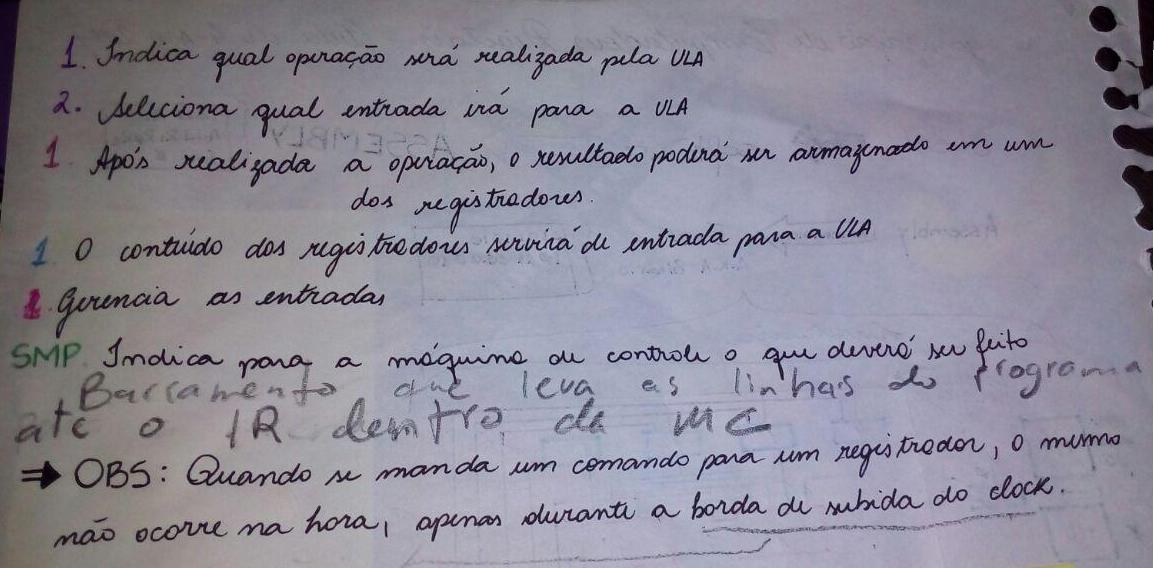 1. Indica qual operação será realizada pela ULA
2. Seleciona qual entrada irá para a ULA
1 Após realizada a operação, o resultado poderá ser armazenado em um
dos registradores.
1 O contúido dos registradores servirá de entrada para a ULA
1. Gerencia as entradas
SMP. Indica para a máquina de controle o que deverá ser feito
Barramento que leva as linhas do programa
até o IR dentro da MC
⇒ OBS: Quando se manda um comando para um registrador, o mesmo
não ocorre na hora, apenas durante a borda de subida do clock.
ASSEMBLY
Assembly